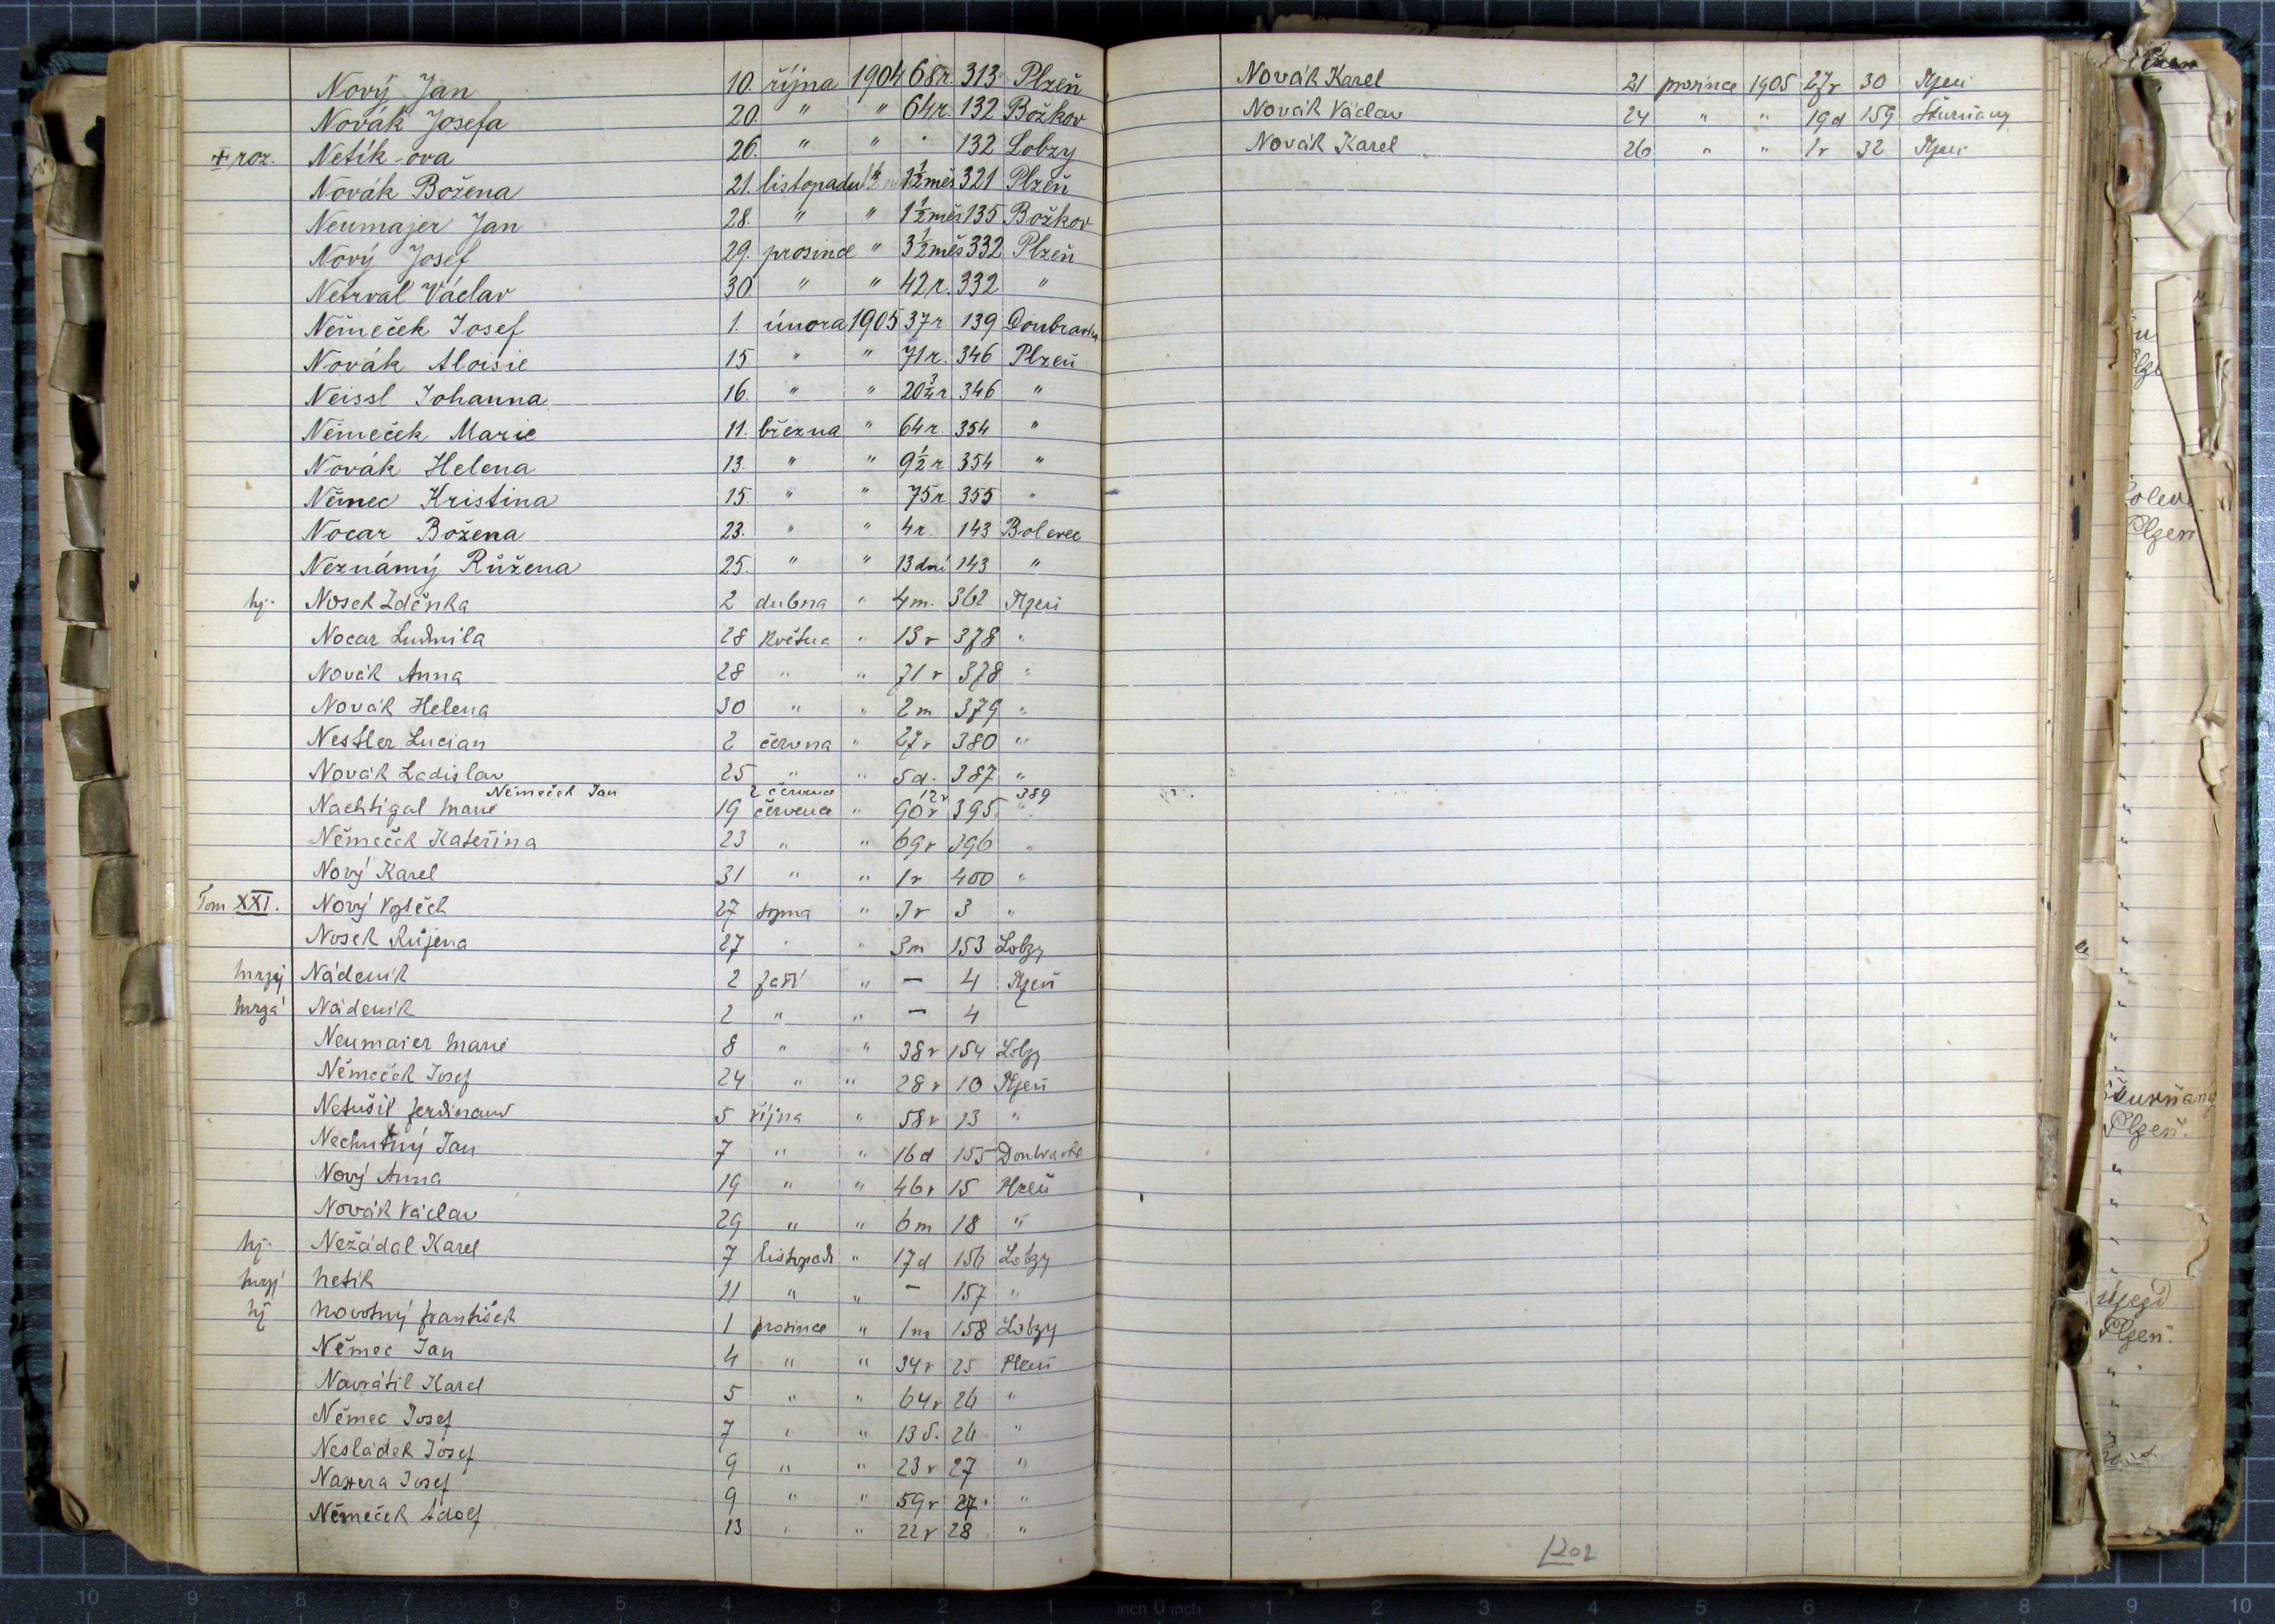 Nový Jan 10. října 1904 68r. 313 Plzeň
Novák Josefa 20. " " 64r. 132 Božkov
roz. Netík-ova 26. " " " 132 Lobzy
Novák Božena 21. listopadu " 1½měs 321 Plzeň
Neumajer Jan 28. " " 1½měs 135 Božkov
Nový Josef 29. prosince " 3½měs 332 Plzeň
Netrval Václav 30 " " 42r. 332 "
Němeček Josef 1. února 1905 37r 139 Doubravka
Novák Aloisie 15 " " 71r. 346 Plzeň
Neissl Johanna 16. " " 20¾r 346 "
Němeček Marie 11. března " 64r. 354 "
Novák Helena 13. " " 9½r 354 "
Němec Kristina 15 " " 75r 355 "
Nocar Božena 23. " " 4r. 143 Bolevec
Neznámý Růžena 25. " " 13dní 143 "
hj. Nosek Zděnka 2 dubna " 4m. 362 Plzeň
Nocar Ludmila 28 května " 13r 378 "
Novák Anna 28 " " 71r 378 "
Novák Helena 30 " " 2m 379 "
Nestler Lucian 2 června " 27r 380 "
Novák Ladislav 25 " " 5d. 387 "
Němeček Jan 2 července 12r 389
Nachtigal Marie 19 července " 90r 395 "
Němeček Kateřina 23 " " 69r 396 "
Nový Karel 31 " " 1r 400 "
Tom XXI. Nový Vojtěch 27 srpna " 3r 3 "
Nosek Růžena 27 " " 3m 153 Lobzy
mrzý Nádeník 2 září " — 4 Plzeň
mrzá Nádeník 2 " " — 4
Neumaier Marie 8 " " 38r 154 Lobzy
Němeček Josef 24 " " 28r 10 Plzeň
Netušil Ferdinand 5 října " 58r 13 "
Nechutný Jan 7 " " 16d 155 Doubravka
Nový Anna 19 " " 46r 15 Plzeň
Novák Václav 29 " " 6m 18 "
hj. Nežádal Karel 7 listopadu " 17d 156 Lobzy
mrzý Netík 11 " " — 157 "
hj Novotný František 1 prosince " 1m 158 Lobzy
Němec Jan 4 " " 34r 25 Plzeň
Navrátil Karel 5 " " 64r 26 "
Němec Josef 7 " " 13d. 26 "
Nesládek Josef 9 " " 23r 27 "
Josef 9 " " 59r 27 "
Němeček Adolf 13 " " 22r 28 "
Novák Karel 21 prosince 1905 27r 30 Plzeň
Novák Václav 24 " " 19d 159 Skurňany
Novák Karel 26 " " 1r 32 Plzeň
202
Plzeň
Skurňany
Plzeň.
Újezd
Plzeň.
10 9 8 7 6 5 4 3 2 1 inch 0 inch 1 2 3 4 5 6 7 8 9 10